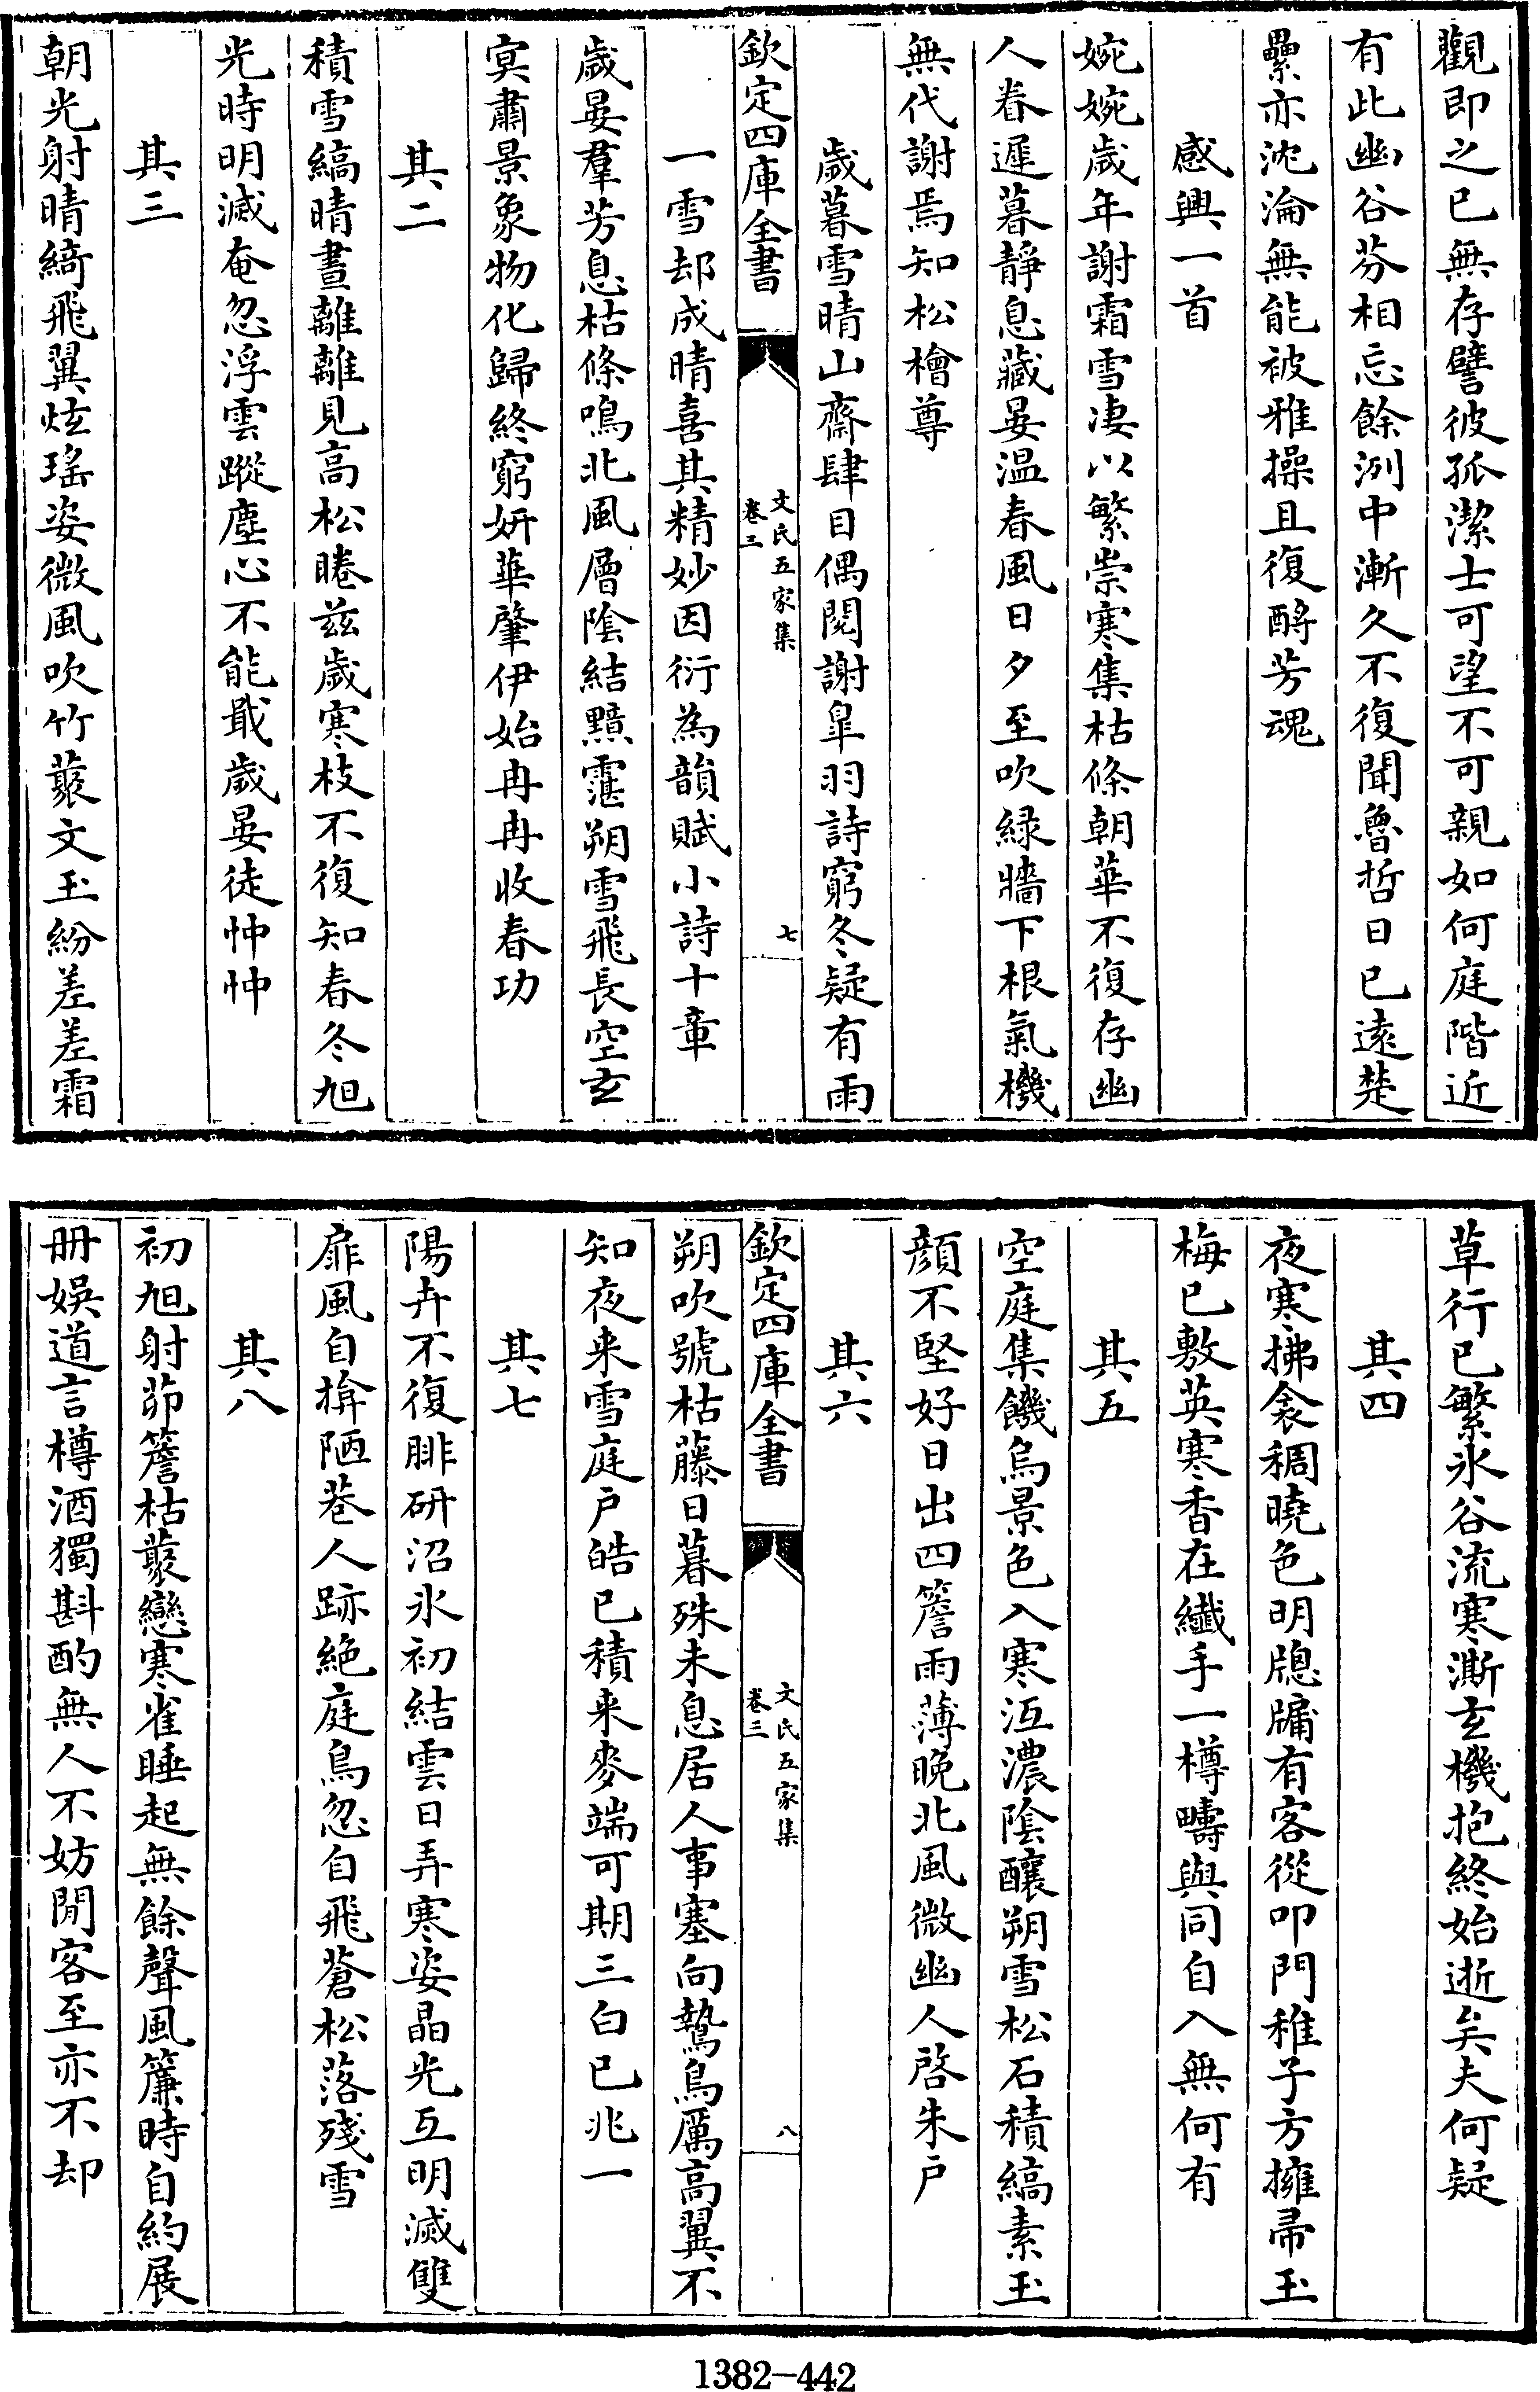 觀即之已無存譬彼孤潔士可望不可親如何庭階近
有此幽谷芬相忘餘洌中漸久不復聞魯哲日已遠楚
纍亦沈淪無能被雅操且復酹芳魂
感興一首
婉婉歲年謝霜雪凄以繁崇寒集枯條朝華不復存幽
人眷遲暮靜息藏晏温春風日夕至吹緑牆下根氣機
無代謝焉知松檜尊
歲暮雪晴山齋肆目偶閱謝臯羽詩窮冬疑有雨
欽定四庫全書
文氏五家集
卷三
七
一雪却成晴喜其精妙因衍為韻賦小詩十章
歲晏羣芳息枯條鳴北風層陰結黯霮朔雪飛長空玄
冥肅景象物化歸終窮妍華肇伊始冉冉收春功
其二
積雪縞晴晝離離見高松睠兹歲寒枝不復知春冬旭
光時明滅奄忽浮雲蹤塵心不能戢歲晏徒忡忡
其三
朝光射晴綺飛翼炫瑤姿微風吹竹䕺文玉紛差差霜
草行已繁氷谷流寒澌玄機抱終始逝矣夫何疑
其四
夜寒拂衾稠曉色明牕牖有客從叩門稚子方擁帚玉
梅已敷英寒香在纖手一樽疇與同自入無何有
其五
空庭集饑烏景色入寒沍濃陰釀朔雪松石積縞素玉
顔不堅好日出四簷雨薄晚北風微幽人啓朱户
其六
欽定四庫全書
文氏五家集
卷三
八
朔吹號枯藤日暮殊未息居人事塞向鷙鳥厲高翼不
知夜来雪庭户皓已積来麥端可期三白已兆一
其七
陽卉不復腓研沼氷初結雲日弄寒姿晶光互明滅雙
扉風自揜陋巷人跡絶庭鳥忽自飛蒼松落殘雪
其八
初旭射茆簷枯䕺戀寒雀睡起無餘聲風簾時自約展
册娛道言樽酒獨斟酌無人不妨閒客至亦不却
1382-442